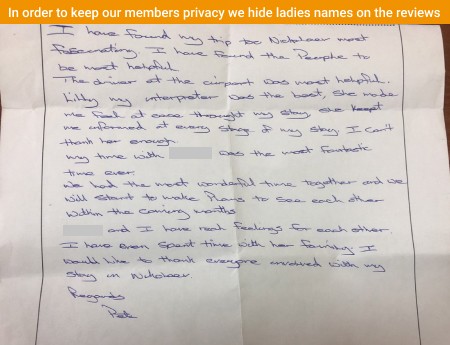 In order to keep our members privacy we hide ladies names on the reviews
I have found my trip to Nikolaev most
fascenating. I have found the People to
be most helpful
The driver at the airport was most helpful.
Lilly my interpreter was the best, she made
me feel at ease throught my stay, she keept
me informed at every stage of my stay I can't
thank her enough.
my time with was the most fantastic
time ever.
We had the most wonderful time together and we
will start to make Plans to see each other
within the coming months
and I have real feelings for each other.
I have even spent time with her family. I
would like to thank everyone involved with my
stay in Nikolaev.
Regards
Pete